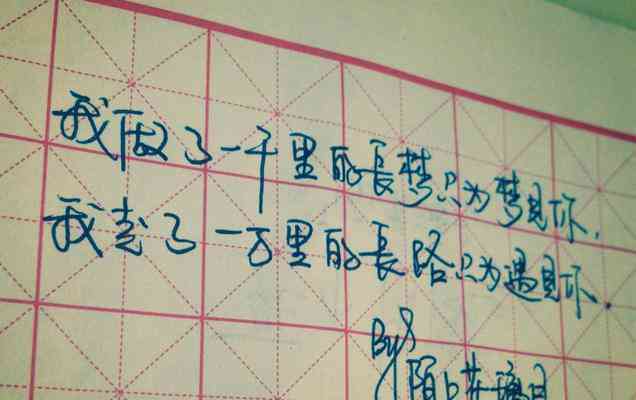 我做了一千里的長梦只为梦見你,
我走了一万里的長路只为遇見你.
By
陌上